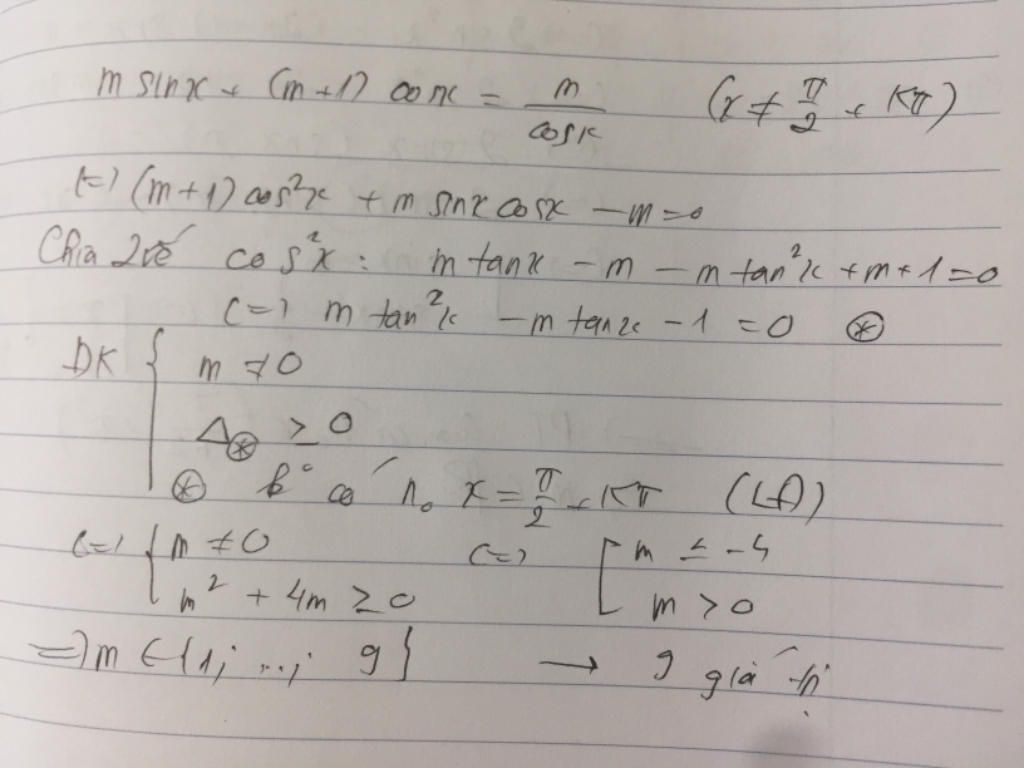 m sinx + (m+1) cosx = m/cosx (x ≠ π/2 + kπ)
(=) (m+1) cos²x + m sinx cosx - m = 0
Chia 2 vế cos²x: m tanx - m - m tan²x + m + 1 = 0
(=) m tan²x - m tanx - 1 = 0 ⊛
ĐK { m ≠ 0
Δ⊛ ≥ 0
⊛ k° có n₀ x = π/2 + kπ (LĐ)
(=) { m ≠ 0 (=) [ m ≤ -4
m² + 4m ≥ 0 m > 0
=) m ∈ {1; ...; 9} → 9 giá trị